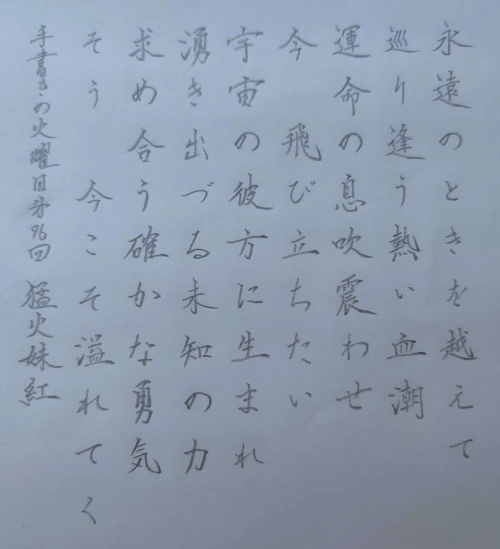 永遠のときを越えて
巡り逢う熱い血潮
運命の息吹震わせ
今 飛び立ちたい
宇宙の彼方に生まれ
湧き出づる未知の力
求め合う確かな勇気
そう 今こそ溢れてく
手書きの火曜日第96回 猛火妹紅